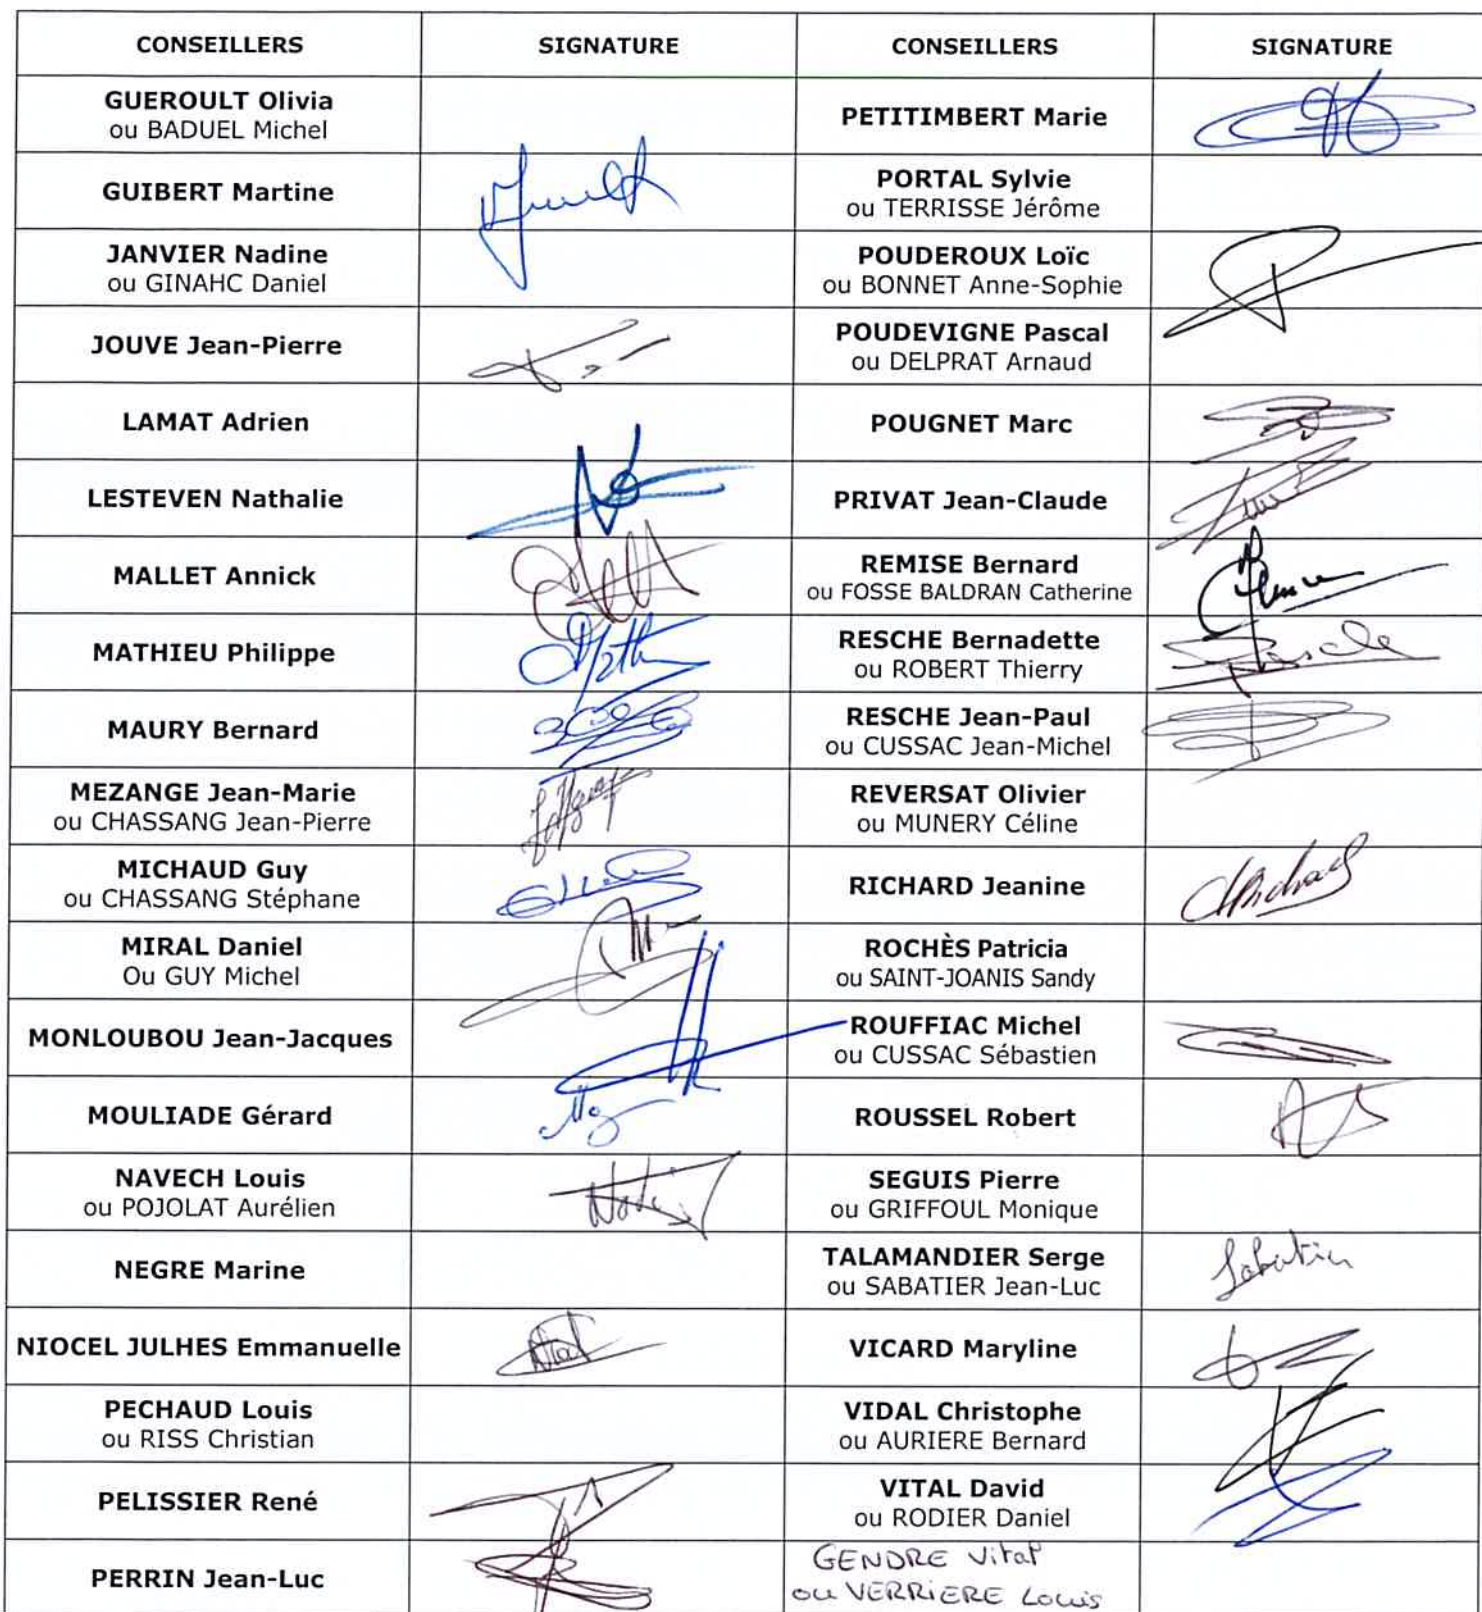 CONSEILLERS SIGNATURE CONSEILLERS SIGNATURE
GUEROULT Olivia
ou BADUEL Michel
PETITIMBERT Marie
GUIBERT Martine
PORTAL Sylvie
ou TERRISSE Jérôme
JANVIER Nadine
ou GINAHC Daniel
POUDEROUX Loïc
ou BONNET Anne-Sophie
JOUVE Jean-Pierre
POUDEVIGNE Pascal
ou DELPRAT Arnaud
LAMAT Adrien
POUGNET Marc
LESTEVEN Nathalie
PRIVAT Jean-Claude
MALLET Annick
REMISE Bernard
ou FOSSE BALDRAN Catherine
MATHIEU Philippe
RESCHE Bernadette
ou ROBERT Thierry
MAURY Bernard
RESCHE Jean-Paul
ou CUSSAC Jean-Michel
MEZANGE Jean-Marie
ou CHASSANG Jean-Pierre
REVERSAT Olivier
ou MUNERY Céline
MICHAUD Guy
ou CHASSANG Stéphane
RICHARD Jeanine
MIRAL Daniel
Ou GUY Michel
ROCHÈS Patricia
ou SAINT-JOANIS Sandy
MONLOUBOU Jean-Jacques
ROUFFIAC Michel
ou CUSSAC Sébastien
MOULIADE Gérard
ROUSSEL Robert
NAVECH Louis
ou POJOLAT Aurélien
SEGUIS Pierre
ou GRIFFOUL Monique
NEGRE Marine
TALAMANDIER Serge
ou SABATIER Jean-Luc
Sabatier
NIOCEL JULHES Emmanuelle
VICARD Maryline
PECHAUD Louis
ou RISS Christian
VIDAL Christophe
ou AURIERE Bernard
PELISSIER René
VITAL David
ou RODIER Daniel
PERRIN Jean-Luc
GENDRE Vital
ou VERRIERE Louis